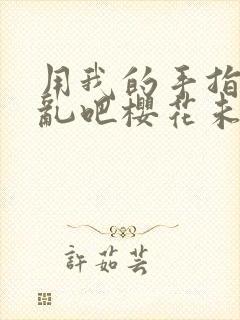 用我的手指
亂吧櫻花未
許茹芸